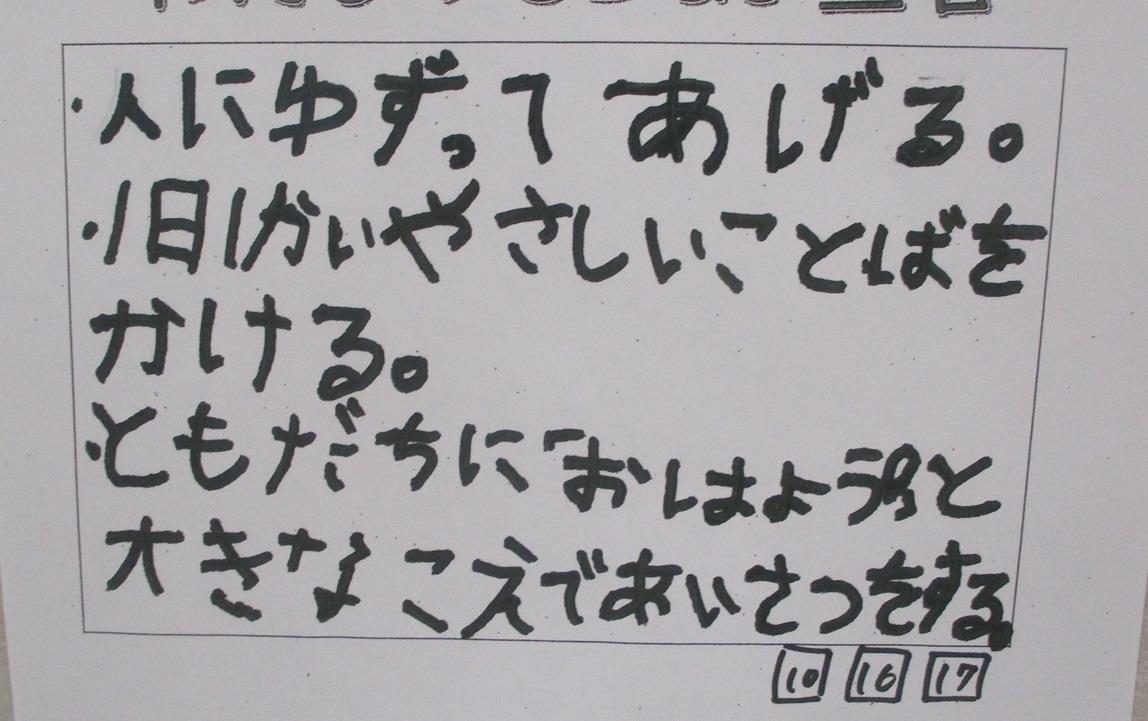 ・人にゆずってあげる。
・1日1かいやさしいことばを
かける。
・ともだちに「おはよう」と
大きなこえであいさつをする。
10 16 17